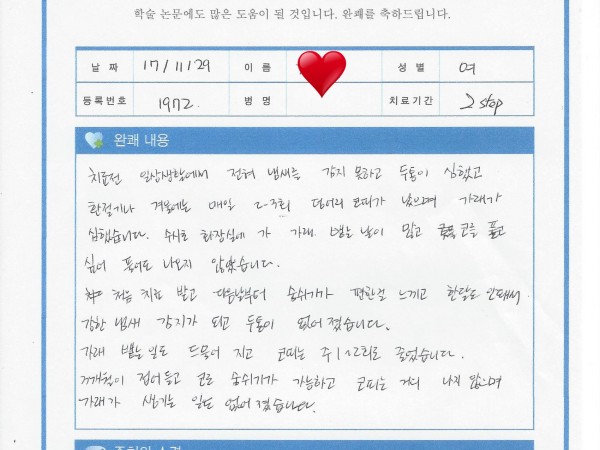 학술 논문에도 많은 도움이 될 것입니다. 완쾌를 축하드립니다.
날 짜 17/11/29 이 름 성 별 여
등록번호 1972. 병 명 치료기간 2 step
완쾌 내용
치료전 일상생활에서 전혀 냄새를 감지 못하고 두통이 심했고
환절기나 겨울에는 매일 2~3회 덩어리 코피가 났으며 가래가
심했습니다. 수시로 화장실에 가 가래 뱉는 날이 많고 코를 풀고
싶어 풀어도 나오지 않았습니다.
처음 치료 받고 다음날부터 숨쉬기가 편한걸 느끼고 한달도 안돼서
강한 냄새 감지가 되고 두통이 없어졌습니다.
가래 뱉는 일도 드물어 지고 코피는 주 1~2회로 줄었습니다.
접어들고 코로 숨쉬기가 가능하고 코피는 거의 나지 않으며
가래가 생기는 일도 없어졌습니다.